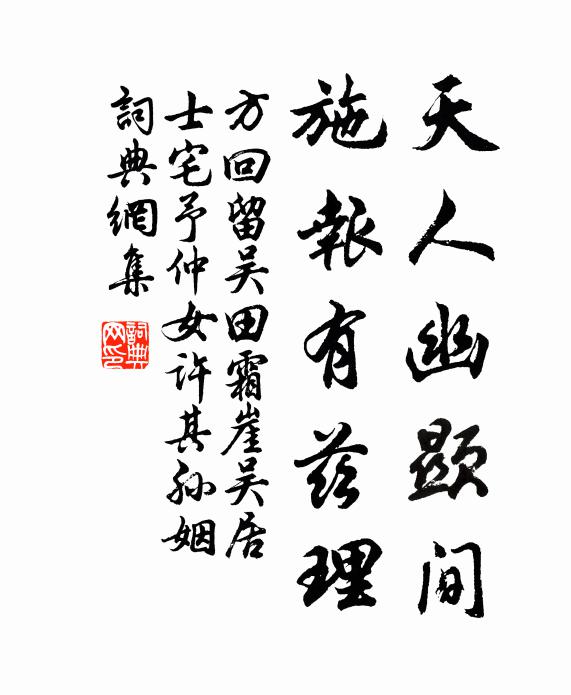 天人幽顯間
施報有茲理
方回留吳田霜崖吳居
士宅予仲女許其孫姻
詞典網集
詞典網印